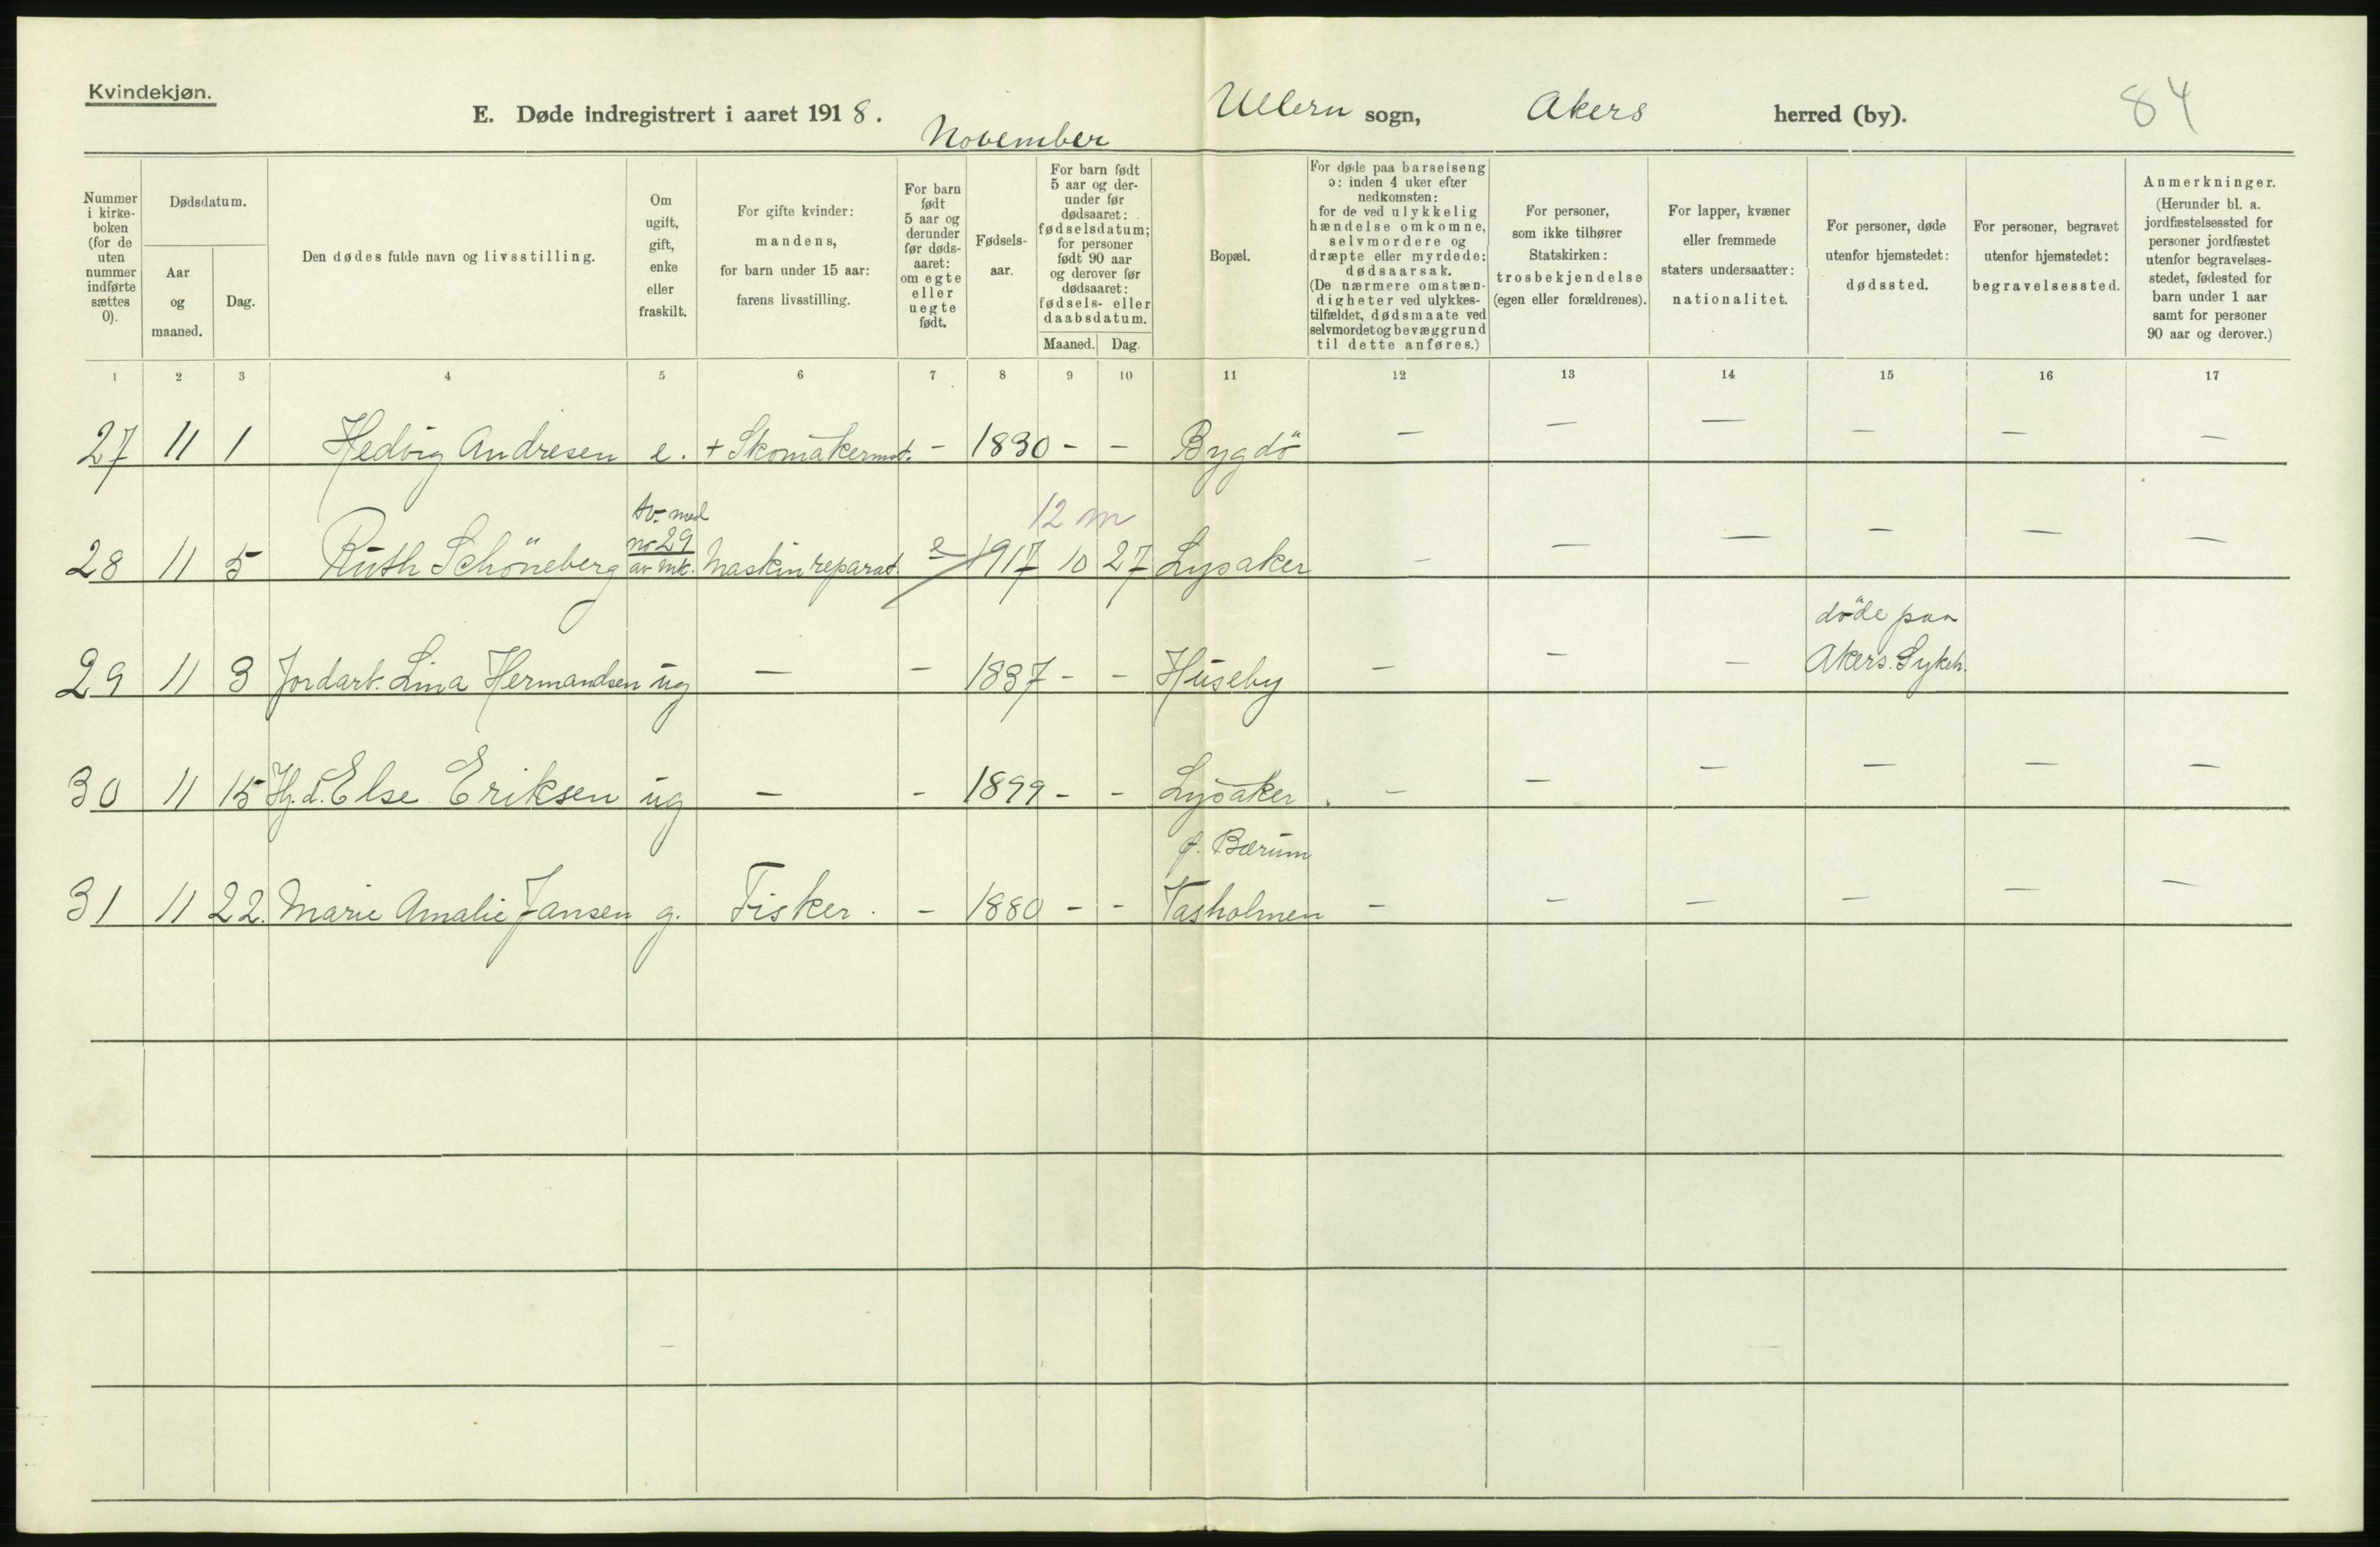 Kvindekjøn.
E. Døde indregistrert i aaret 1918. November Ullern sogn, Akers herred (by). 84
Nummer i kirke-boken (for de uten nummer indførte sættes 0).
Dødsdatum.
Aar og maaned.
Dag.
Den dødes fulde navn og livsstilling.
Om ugift, gift, enke eller fraskilt.
For gifte kvinder: mandens, for barn under 15 aar: farens livsstilling.
For barn født 5 aar og derunder før døds-aaret: om egte eller uegte født.
Fødsels-aar.
For barn født 5 aar og der-under før dødsaaret: fødselsdatum; for personer født 90 aar og derover før dødsaaret: fødsels- eller daabsdatum.
Maaned. Dag.
Bopæl.
For døde paa barselseng ɔ: inden 4 uker efter nedkomsten: for de ved ulykkelig hændelse omkomne, selvmordere og dræpte eller myrdede: dødsaarsak. (De nærmere omstæn-digheter ved ulykkes-tilfældet, dødsmaate ved selvmordet og bevæggrund til dette anføres.)
For personer, som ikke tilhører Statskirken: trosbekjendelse (egen eller forældrenes).
For lapper, kvæner eller fremmede staters undersaatter: nationalitet.
For personer, døde utenfor hjemstedet: dødssted.
For personer, begravet utenfor hjemstedet: begravelsessted.
Anmerkninger. (Herunder bl. a. jordfæstelsessted for personer jordfæstet utenfor begravelses-stedet, fødested for barn under 1 aar samt for personer 90 aar og derover.)
1 2 3 4 5 6 7 8 9 10 11 12 13 14 15 16 17
27 11 1 Hedvig Andresen e. + Skomakermst. - 1830 - - Bygdö - - - - - -
no 29 12 m
28 11 5 Ruth Schöneberg Maskinreparat. e 1917 10 27 Lysaker - - - - - -
döde paa
29 11 3 Jordarb. Lina Hermandsen ug - - 1837 - - Huseby - - - Akers. Sykeh.
30 11 15 Hj. d. Else Eriksen ug - - 1899 - - Lysaker - - - - - -
f. Bærum
31 11 22. Marie Amalie Jansen g. Fisker. - 1880 - - Vasholmen - - - - - -